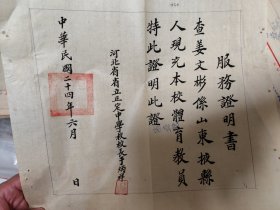 服務證明書
查姜文彬係山東掖縣
人現充本校體育教員
特此證明此證
河北省省立正定中學校校長
中華民國二十四年六月 日